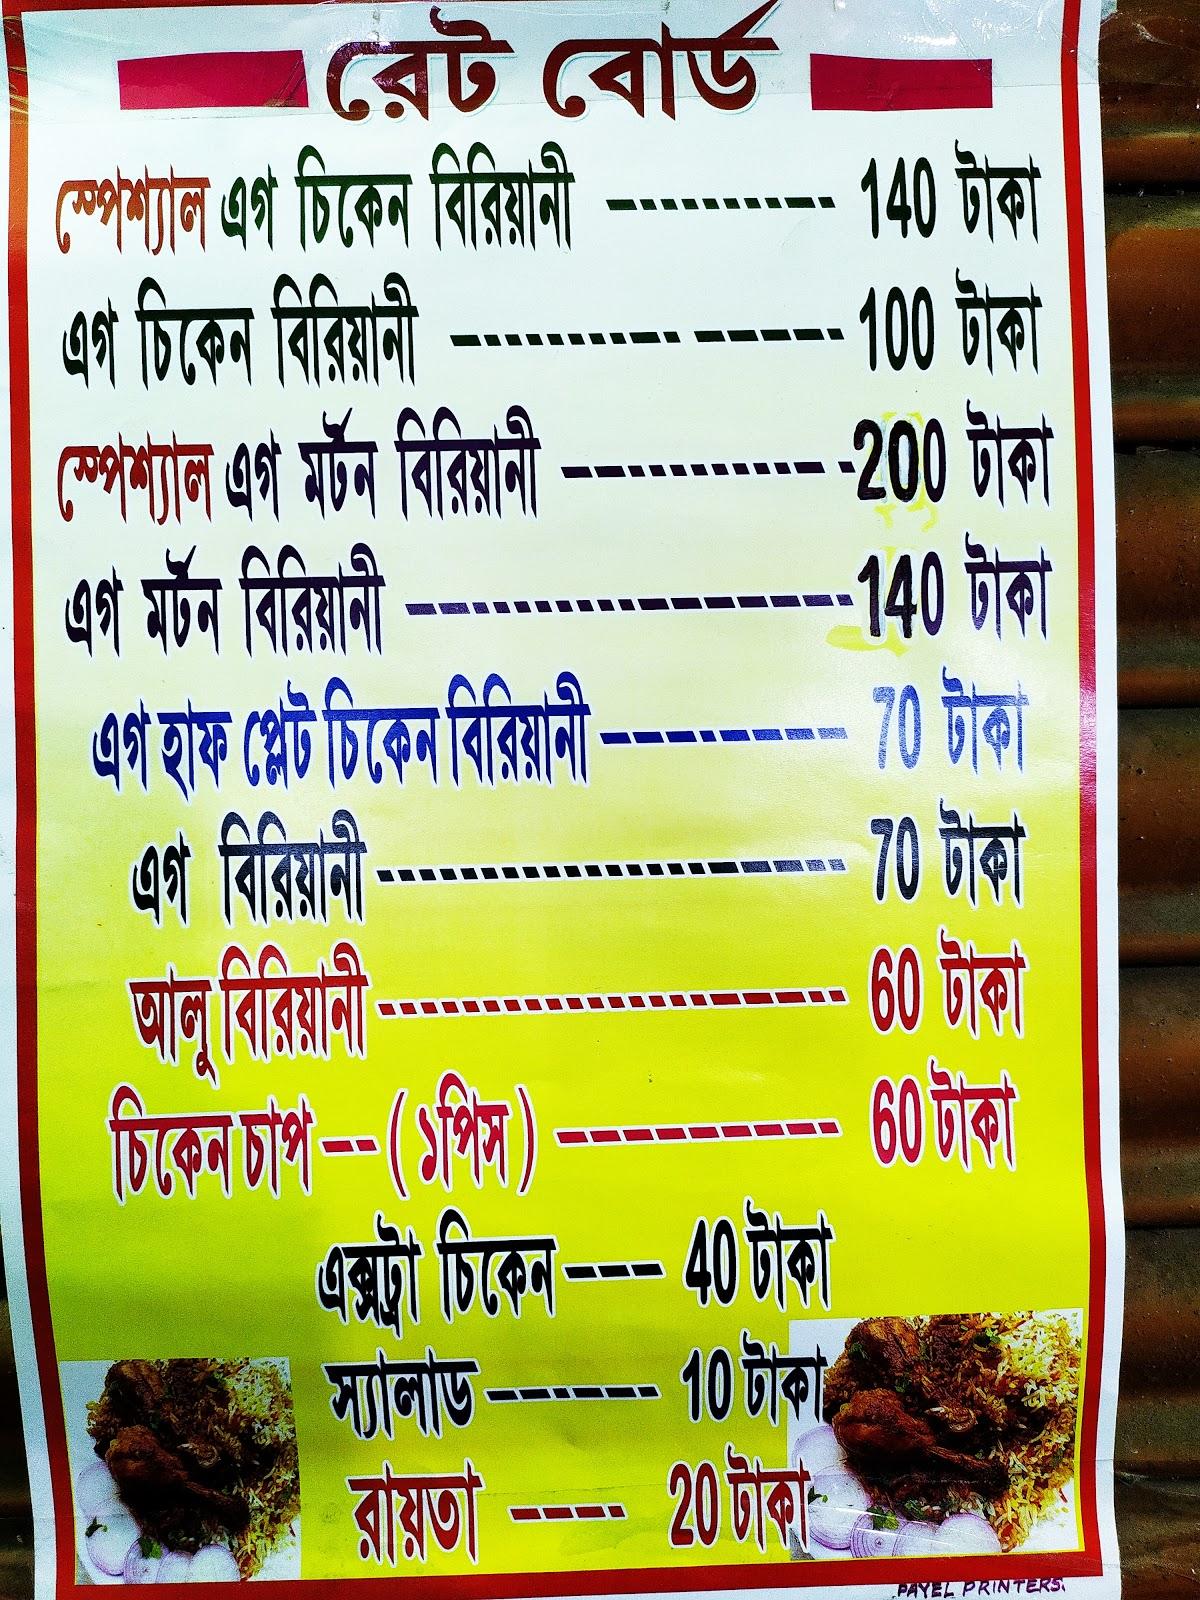 রেট বোর্ড
স্পেশ্যাল এগ চিকেন বিরিয়ানী ---------- 140 টাকা
এগ চিকেন বিরিয়ানী --------------- 100 টাকা
স্পেশ্যাল এগ মর্টন বিরিয়ানী ----------- 200 টাকা
এগ মর্টন বিরিয়ানী ----------------- 140 টাকা
এগ হাফ প্লেট চিকেন বিরিয়ানী -------- 70 টাকা
এগ বিরিয়ানী ------------------ 70 টাকা
আলু বিরিয়ানী ------------------ 60 টাকা
চিকেন চাপ -- ( ১পিস ) --------- 60 টাকা
এক্সট্রা চিকেন --- 40 টাকা
স্যালাড ------ 10 টাকা
রায়তা ---- 20 টাকা
PAYEL PRINTERS.